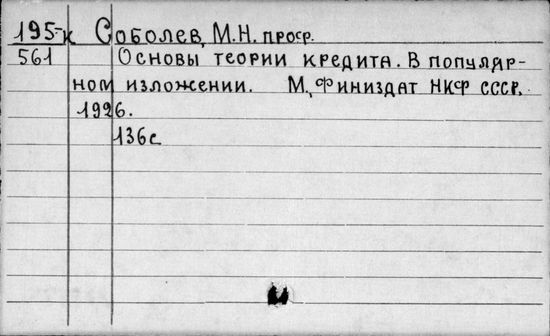 195-к Соболев, М.Н. проф.
561 Основы теории кредита. В популяр-
ном изложении. М., Финиздат НКФ СССР.
1926.
136с